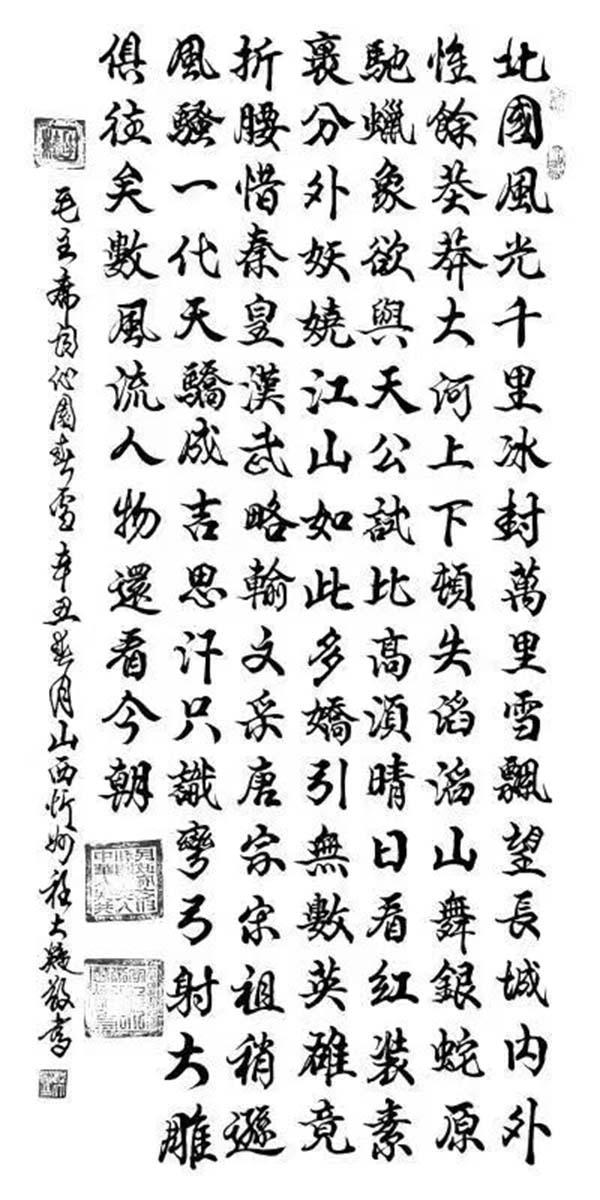 北國風光千里冰封萬里雪飄望長城內外
惟餘莽莽大河上下頓失滔滔山舞銀蛇原
馳蠟象欲與天公試比高須晴日看紅裝素
裹分外妖嬈江山如此多嬌引無數英雄竟
折腰惜秦皇漢武略輸文采唐宗宋祖稍遜
風騷一代天驕成吉思汗只識彎弓射大雕
俱往矣數風流人物還看今朝
毛主席詞沁園春雪辛丑春月山西忻州程大敬書